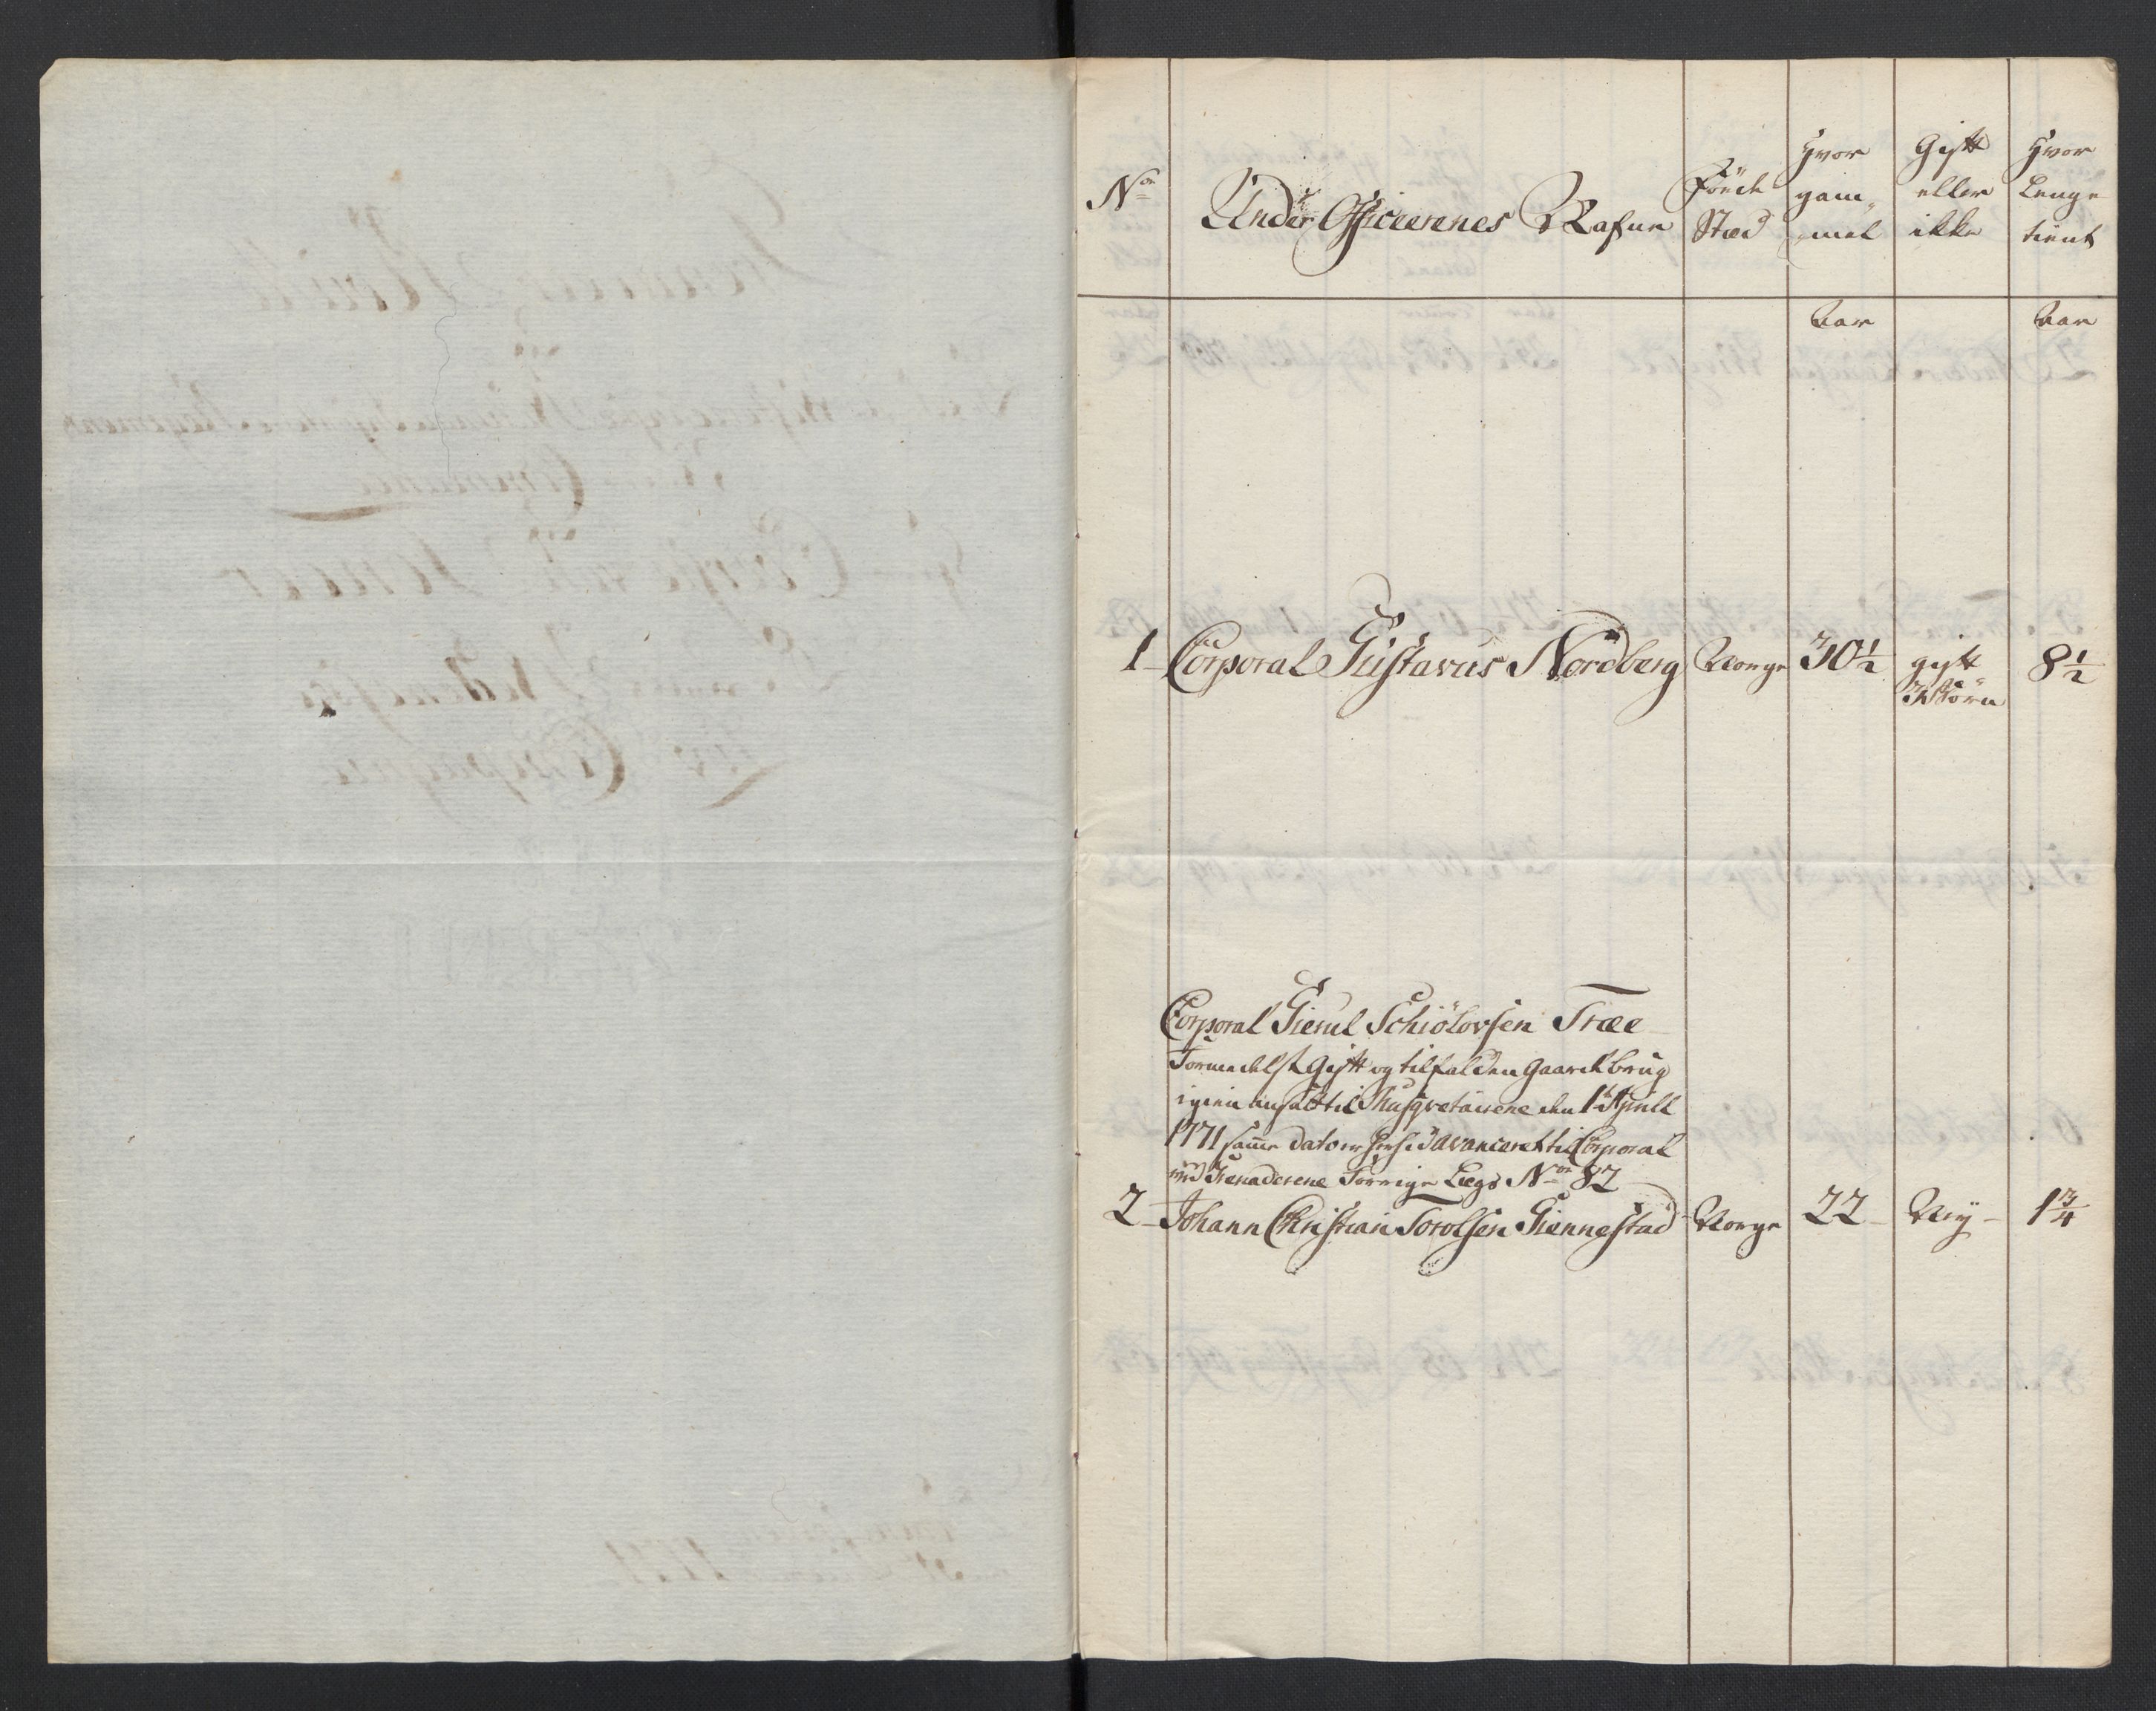 No
Under Officerernes Nafne
Föede
Stæd
Hvor
gam„
mel
Gift
eller
ikke
Hvor
Lenge
tient
Aar
Aar
1 Corporal Gustavus Nordberg Norge 30½ gift 8½
3 Börn
Corporal Giermd Schiölovsen Træe
Formedelst Gift og tilfalden Gaardbrug
igien ansat til Musqvetairene den 1te Aprill
1771 samme dato er hersid avanceret til Corporal
ved Grenaderene Forrige Lægs No 82
2 Johann Christian Torolfsen Giennestad Norge 22 Nej 1¾